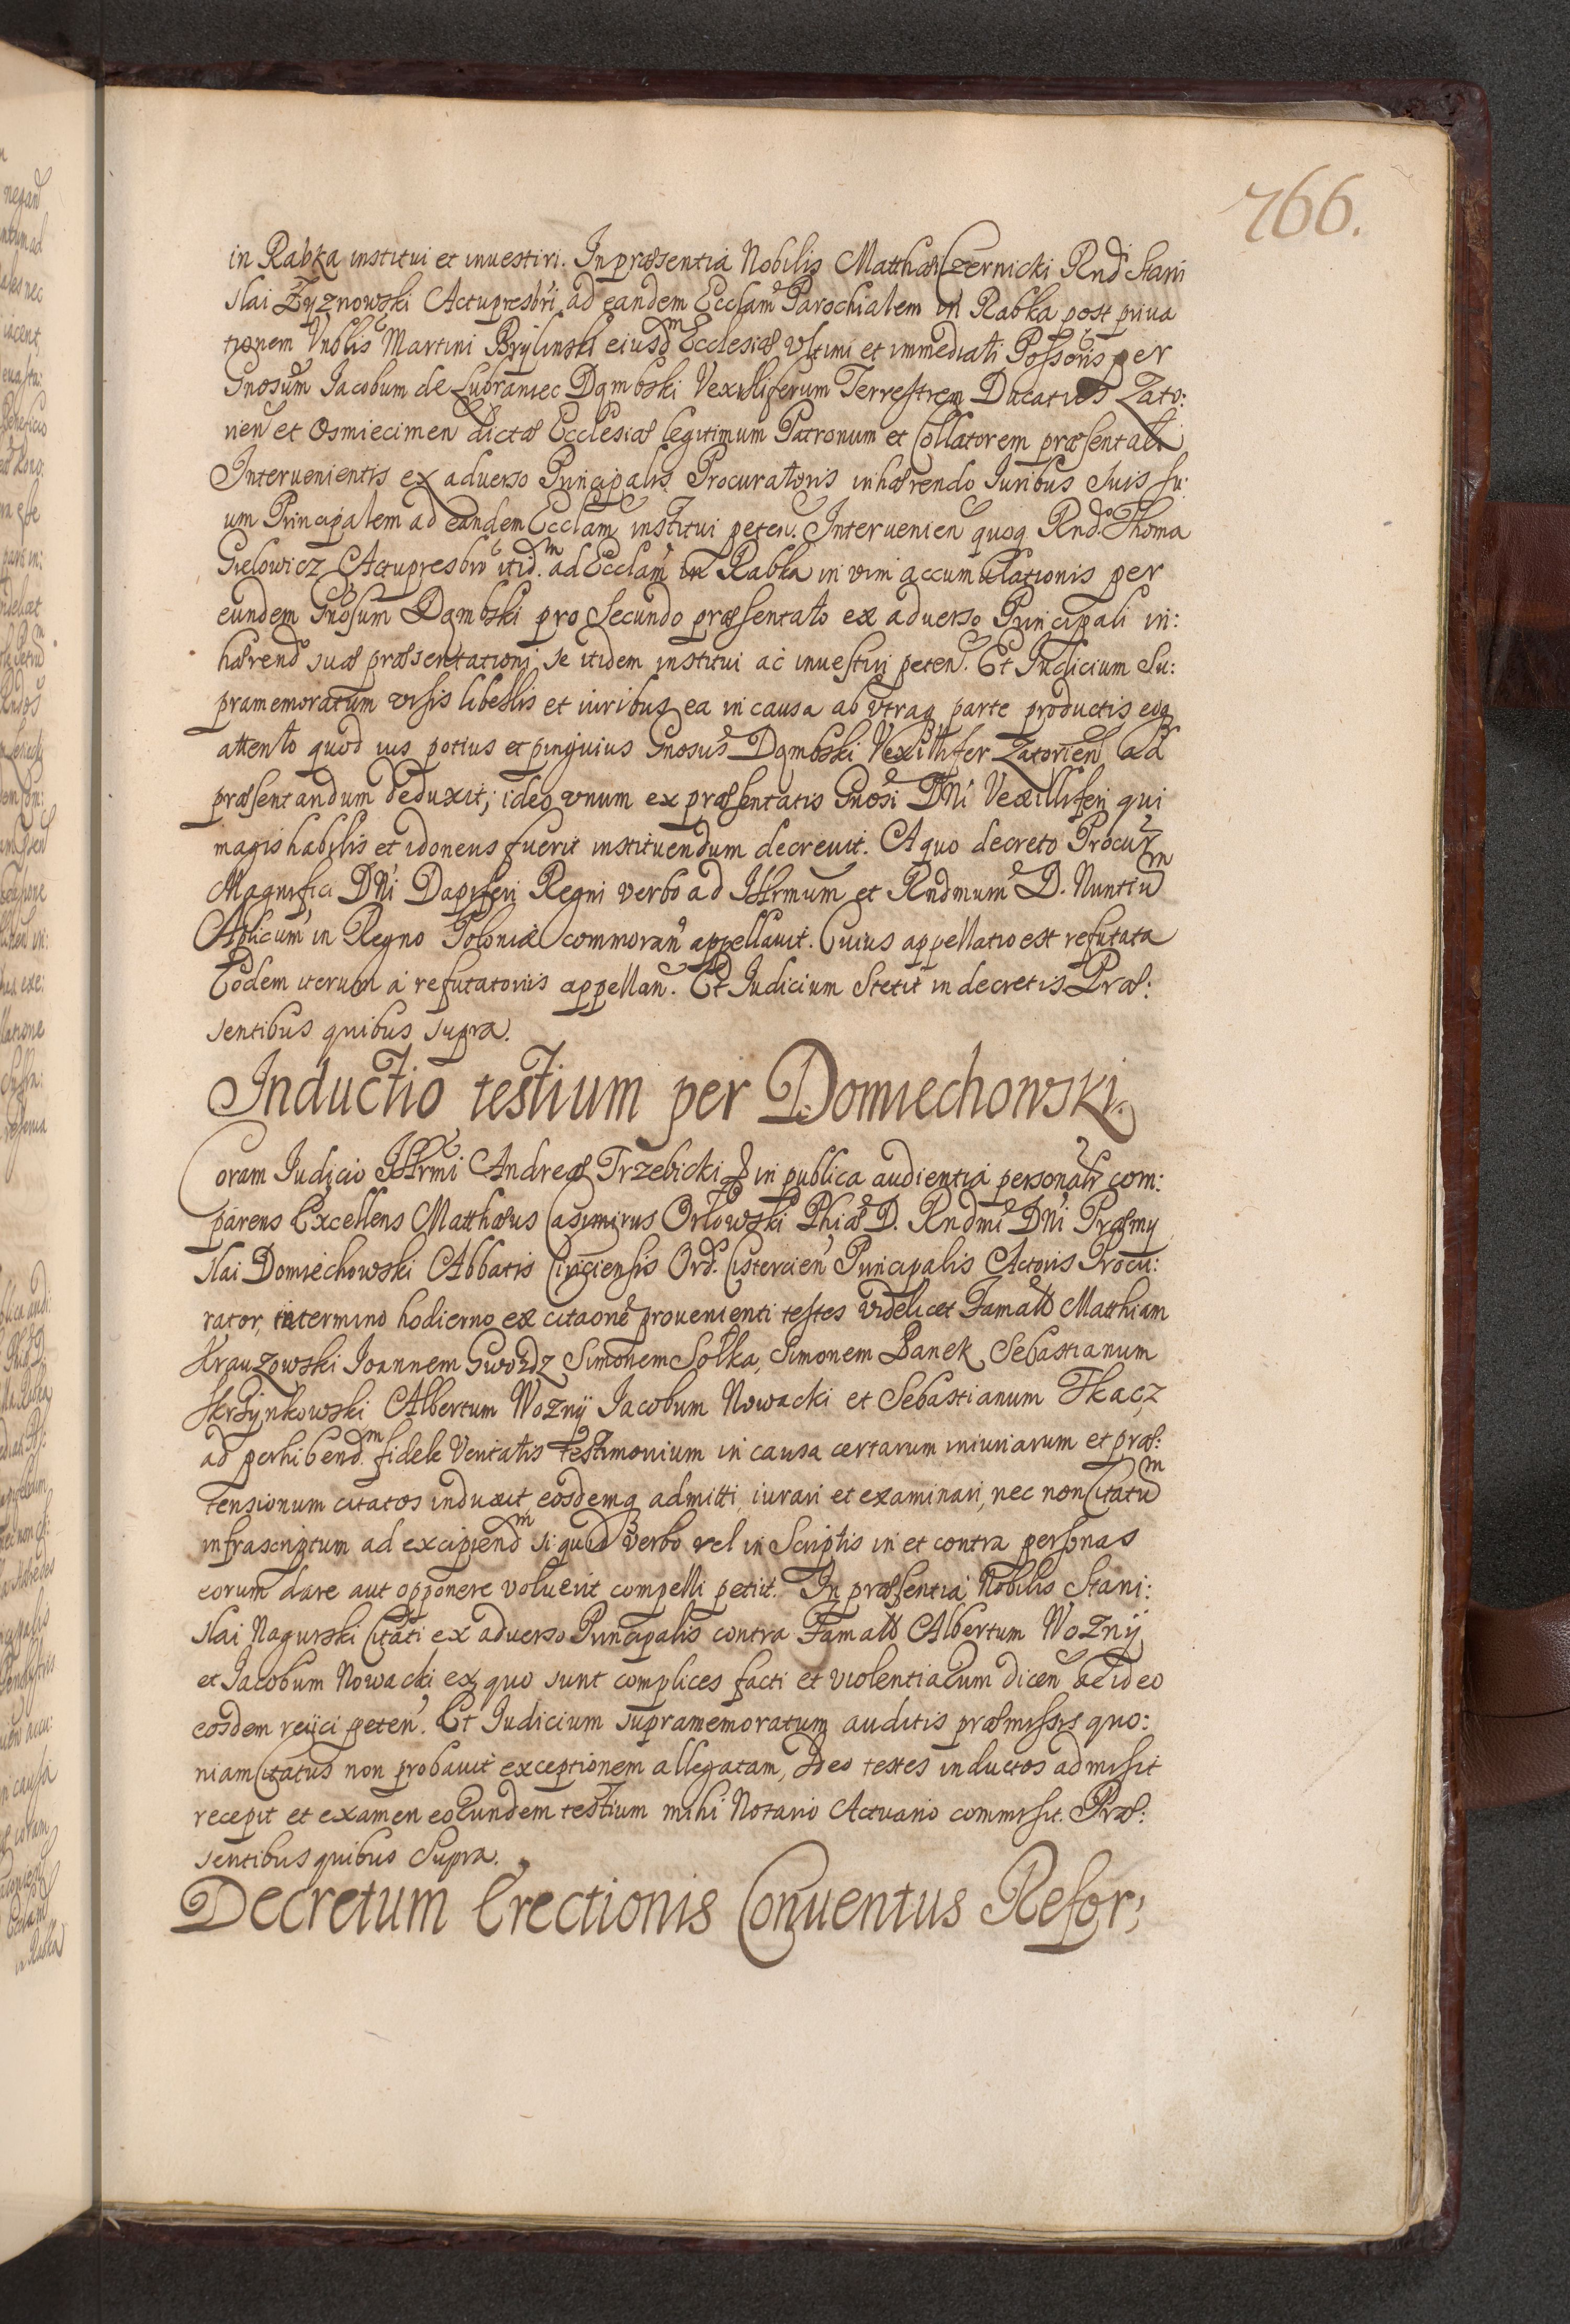 766.
in Rabka institui et inuestiri. In præsentia Nobilis Matthæi Czernicki Rnd Stani
slai Zyznowski Actupresbri ad eandem Ecclam Parochialem in Rabka post priua
tionem Vnblis Martini Brylinski eiusdm Ecclesiæ vltimi et immediati Possoris per
Gnosum Jacobum de Lubraniec Dąmbski Vexilliferum Terrestrem Ducatus Zato:
rien et Osmiecimen dictæ Ecclesiæ legitimum Patronum et Collatorem præsentati
Interuenientis ex aduerso Principalis Procuratoris inhærendo Iuribus suis su:
um Principalem ad eandem Ecclam institui peten. Interuenien quoq Rnd. Thoma
Gielowicz Actupresbro itidm. ad Ecclam in Rabka in vim accumulationis per
eundem Gnosum Dąmbski pro secundo præsentato ex aduerso Principali in:
hærend suæ præsentationi se itidem institui ac inuestiri peten. Et Judicium Su:
pramemoratum visis libellis et iuribus ea in causa ab vtraq parte productis eoq
attento quod ius potius et pinguius Gnosus Dąmbski Vexillifer Zatorien ad
præsentandum deduxit; ideo vnum ex præsentatis Gnosi DNi Vexilliferi qui
magis habilis et idoneus fuerit instituendum decreuit. A quo decreto Procur
Magnifici DNi Dapiferi Regni verbo ad Illrmum et Rndmum D. Nuntium
Aplicum in Regno Poloniæ commoran appellauit. Cuius appellatio est refutata
Eodem iterum a refutatoriis appellan. Et Judicium stetit in decretis Præ:
sentibus quibus supra.
Inductio testium per Domiechowski.
Coram Judicio Illrmi Andreæ Trzebicki in publica audientia personalr com:
parens Excellens Matthæus Casimirus Orłowski Phiæ D. Rndmi DNi Præmy
slai Domiechowski Abbatis Ciriciensis Ord. Cistercien Principalis Actoris Procu:
rator, in termino hodierno ex citaone prouenienti testes videlicet Famatos Matthiam
Krauzowski Joannem Gwozdz Simonem Solka, Simonem Banek Sebastianum
Skrzynkowski Albertum Wozny Jacobum Nowacki et Sebastianum Tkacz
ad perhibendm. fidele Veritatis Testimonium in causa certarum iniuriarum et præ:
tensionum citatos induxit, eosdemq admitti, iurari et examinari, nec non Citatum
infrascriptum ad excipiendm si quid verbo vel in Scriptis in et contra personas
eorum dare aut opponere voluerit compelli petiit. In præsentia Nobilis Stani:
slai Nagurski Citati ex aduerso Principalis contra Famatos Albertum Wozny
et Jacobum Nowacki ex quo sunt complices facti et violentiarum dicen ac ideo
eosdem reijci peten. Et Judicium supramemoratum auditis præmissis quo:
niam Citatus non probauit exceptionem allegatam, Ideo testes inductos admisit
recepit et examen eorundem testium mihi Notario Actuario commisit. Præ:
sentibus quibus Supra.
Decretum Erectionis Conuentus Refor: